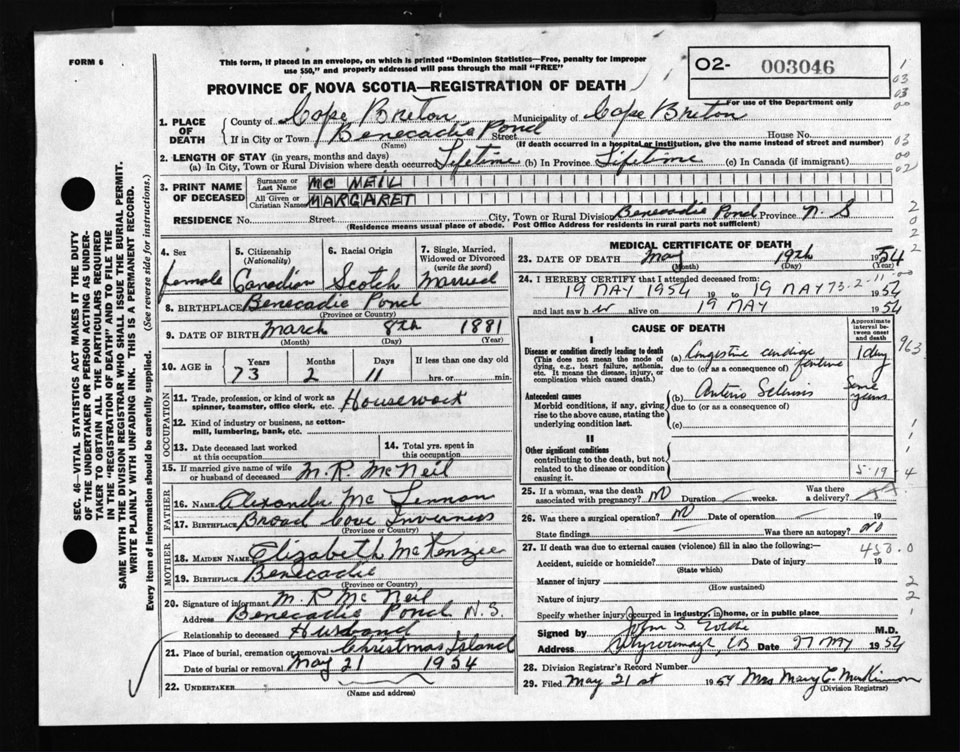 FORM 6
This form, if placed in an envelope, on which is printed "Dominion Statistics—Free, penalty for improper
use $50," and properly addressed will pass through the mail "FREE"
O2- 003046
PROVINCE OF NOVA SCOTIA—REGISTRATION OF DEATH
For use of the Department only
1. PLACE OF DEATH
County of Cape Breton Municipality of Cape Breton
If in City or Town Benecadie Pond Street House No.
(Name) (If death occurred in a hospital or institution, give the name instead of street and number)
2. LENGTH OF STAY (in years, months and days)
(a) In City, Town or Rural Division where death occurred Lifetime (b) In Province Lifetime (c) In Canada (if immigrant)
3. PRINT NAME OF DECEASED
Surname or Last Name MC NEIL
All Given or Christian Names MARGARET
RESIDENCE No. Street City, Town or Rural Division Benecadie Pond Province N. S
(Residence means usual place of abode. Post Office Address for residents in rural parts not sufficient)
4. Sex
female
5. Citizenship
(Nationality)
Canadian
6. Racial Origin
Scotch
7. Single, Married,
Widowed or Divorced
(write the word)
Married
8. BIRTHPLACE Benecadie Pond
(Province or Country)
9. DATE OF BIRTH March 8th 1881
(Month) (Day) (Year)
10. AGE in
Years Months Days If less than one day old
73 2 11 hrs. or min.
OCCUPATION
11. Trade, profession, or kind of work as
spinner, teamster, office clerk, etc. Housework
12. Kind of industry or business, as cotton-
mill, lumbering, bank, etc.
13. Date deceased last worked
at this occupation
14. Total yrs. spent in
this occupation
15. If married give name of wife
or husband of deceased M. R. McNeil
FATHER
16. NAME Alexander Mc Lennan
17. BIRTHPLACE Broad Cove Inverness
(Province or Country)
MOTHER
18. MAIDEN NAME Elizabeth McKenzie
19. BIRTHPLACE Benecadie
(Province or Country)
20. Signature of informant M. R McNeil
Address Benecadie Pond N.S.
Relationship to deceased Husband
21. Place of burial, cremation or removal Christmas Island
Date of burial or removal May 21 1954
22. UNDERTAKER
(Name and address)
MEDICAL CERTIFICATE OF DEATH
23. DATE OF DEATH May 19th 1954
(Month) (Day) (Year)
24. I HEREBY CERTIFY that I attended deceased from:
19 MAY 1954 19 to 19 MAY 1954
73-2-11-00
and last saw her alive on 19 MAY 1954
CAUSE OF DEATH
Approximate
interval be-
tween onset
and death
I
Disease or condition directly leading to death
(This does not mean the mode of
dying, e.g., heart failure, asthenia,
etc. It means the disease, injury, or
complication which caused death.)
(a) Congestive cardiac failure 1 day
due to (or as a consequence of)
963
Antecedent causes
Morbid conditions, if any, giving
rise to the above cause, stating the
underlying condition last.
(b) Some years
due to (or as a consequence of)
(c)
II
Other significant conditions
contributing to the death, but not
related to the disease or condition
causing it.
5-19-4
25. If a woman, was the death
associated with pregnancy? NO Duration weeks. Was there
a delivery?
26. Was there a surgical operation? NO Date of operation 19
State findings Was there an autopsy? NO
27. If death was due to external causes (violence) fill in also the following:—
450.0
Accident, suicide or homicide? Date of injury 19
(State which)
Manner of injury
(How sustained)
Nature of injury
Specify whether injury occurred in industry, in home, or in public place
Signed by M.D.
Address Date 27 May 1954
28. Division Registrar's Record Number
29. Filed May 21st 1954 Mrs Mary C. MacKinnon
(Division Registrar)
SEC. 46—VITAL STATISTICS ACT MAKES IT THE DUTY
OF THE UNDERTAKER OR PERSON ACTING AS UNDER-
TAKER TO OBTAIN ALL THE PARTICULARS REQUIRED
IN THE "REGISTRATION OF DEATH" AND TO FILE THE
SAME WITH THE DIVISION REGISTRAR WHO SHALL ISSUE THE BURIAL PERMIT.
WRITE PLAINLY WITH UNFADING INK. THIS IS A PERMANENT RECORD.
Every item of information should be carefully supplied. (See reverse side for instructions.)
1
03
03
00
03
00
02
2
0
2
2
1
1
2
2